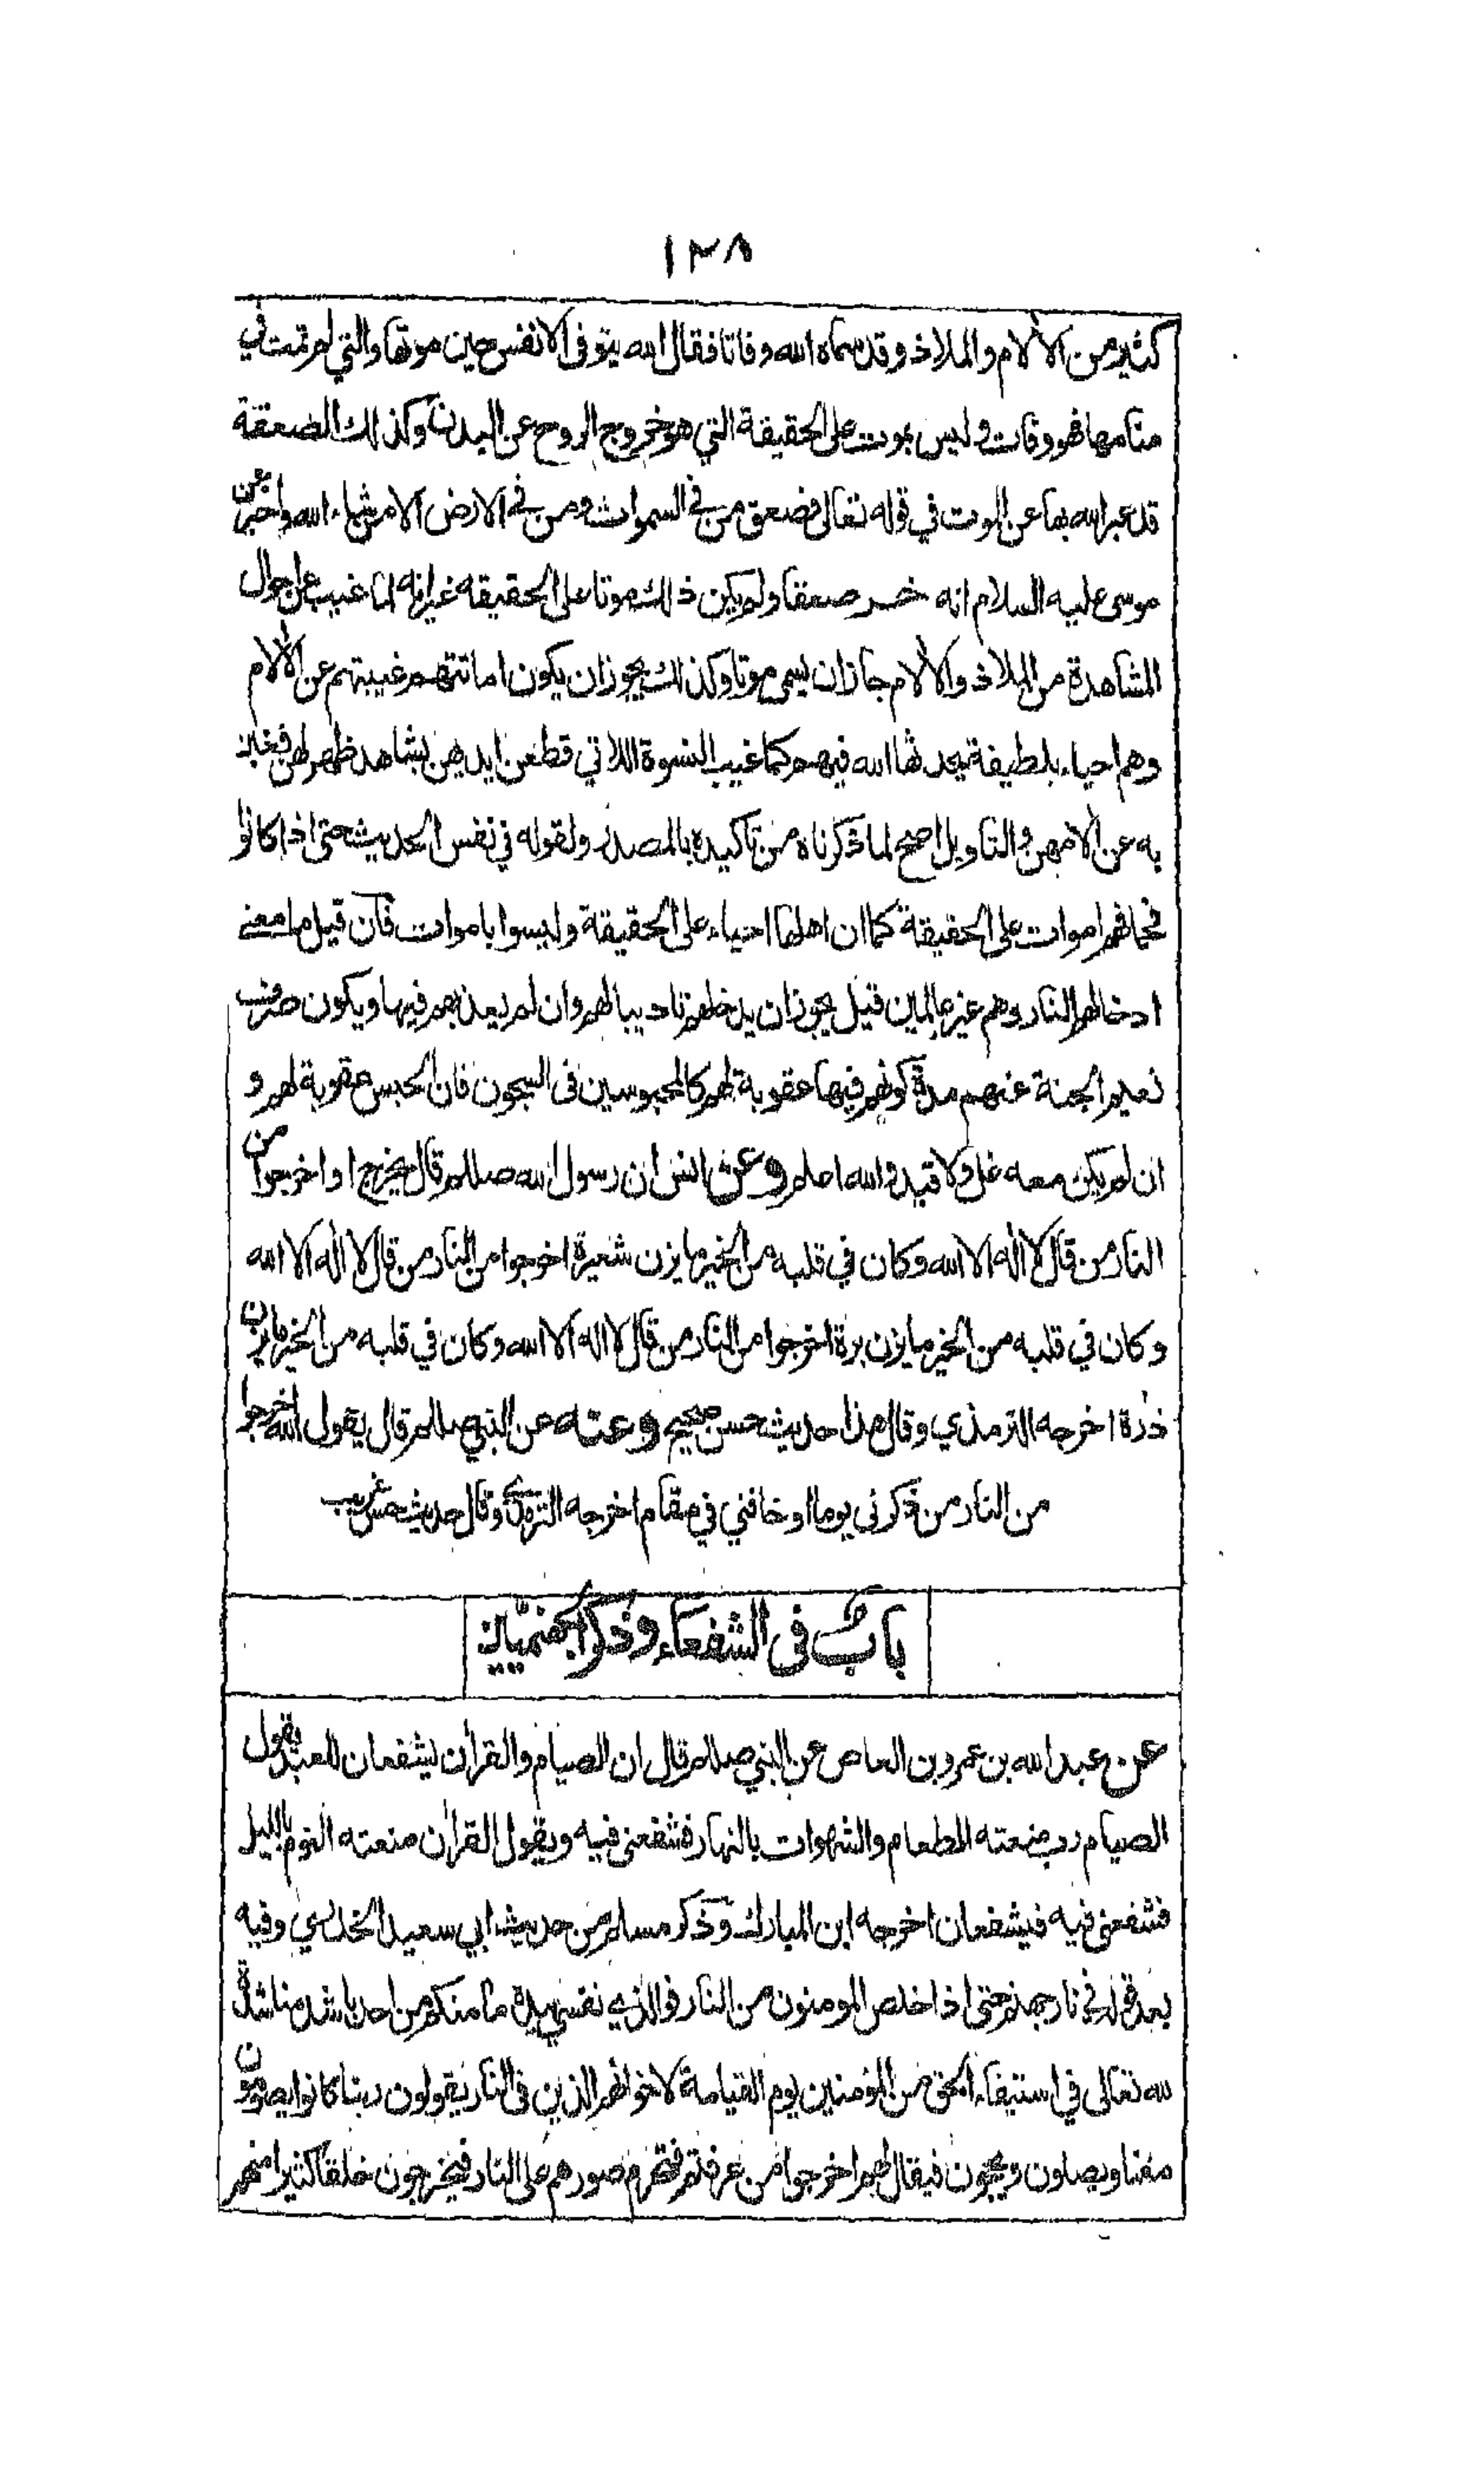 ١٢٨
كثير من الألام والملاذ وقد سماه الله وفاتا فقال الله يتوفى الانفس حين موتها والتي لم تمت في
منامها فهو وفات وليس بموت على الحقيقة التي هو خروج الروح عن البدن وكذلك الصعقة
قد عبر الله بها عن الموت في قوله تعالى فصعق من في السموات ومن في الارض الا من شاء الله واخبر عن
موسى عليه السلام انه خر صعقا ولم يكن ذلك موتا على الحقيقه غير انه لما غيب عن احوال
المشاهدة من الملاذ والألام جاز ان يسمى موتا وكذلك يجوز ان يكون اماتتهم غيبتهم عن الألام
وهم احياء بلطيفة يحدثها الله فيهم كما غيب النسوة اللاتي قطعن ايديهن بشاهد ظهر لهن فغبن
به عن ألامهن والتاويل اصح لما ذكرناه من تاكيده بالمصدر ولقوله في نفس الحديث حتى اذا كانوا
فحما فهم اموات على الحقيقة كما ان اهلها احياء على الحقيقة وليسوا باموات فان قيل ما معنى
ادخالهم النار وهم غير عالمين قيل يجوز ان يدخلهم تاديبا لهم وان لم يعذبهم فيها ويكون صرف
نعيم الجنة عنهم مدة كونهم فيها عقوبة لهم كالمحبوسين فى السجون فان الحبس عقوبة لهم و
ان لم يكن معه غل ولا قيد والله اعلم وعن انس ان رسول الله صللم قال يخرج او اخرجوا من
النار من قال لا اله الا الله وكان في قلبه من الخير ما يزن شعيرة اخرجوا من النار من قال لا اله الا الله
وكان في قلبه من الخير ما يزن برة اخرجوا من النار من قال لا اله الا الله وكان في قلبه من الخير ما يزن
ذرة اخرجه الترمذي وقال هذا حديث حسن صحيح وعنه عن النبي صللم قال يقول الله اخرجوا
من النار من ذكرنى يوما او خافني في مقام اخرجه الترمذي وقال حديث حسن غريب
باب فى الشفعاء وذكر الجهنميين
عن عبد الله بن عمرو بن العاص عن النبي صللم قال ان الصيام والقرأن يشفعان للعبد يقول
الصيام رب منعته الطعام والشهوات بالنهار فشفعنى فيه ويقول القرأن منعته النوم بالليل
فشفعنى فيه فيشفعان اخرجه ابن المبارك وذكر مسلم من حديث ابي سعيد الخدري وفيه
بعد قوله في نار جهنم حتى اذا خلص المومنون من النار فوالذي نفسي بيده ما منكم من احد باشد مناشدة
لله تعالى في استيفاء الحق من المؤمنين يوم القيامة لاخوانهم الذين فى النار يقولون ربنا كانوا يصومون
معنا ويصلون ويحجون فيقال لهم اخرجوا من عرفتم فتحرم صورهم على النار فيخرجون خلقا كثيرا منهم